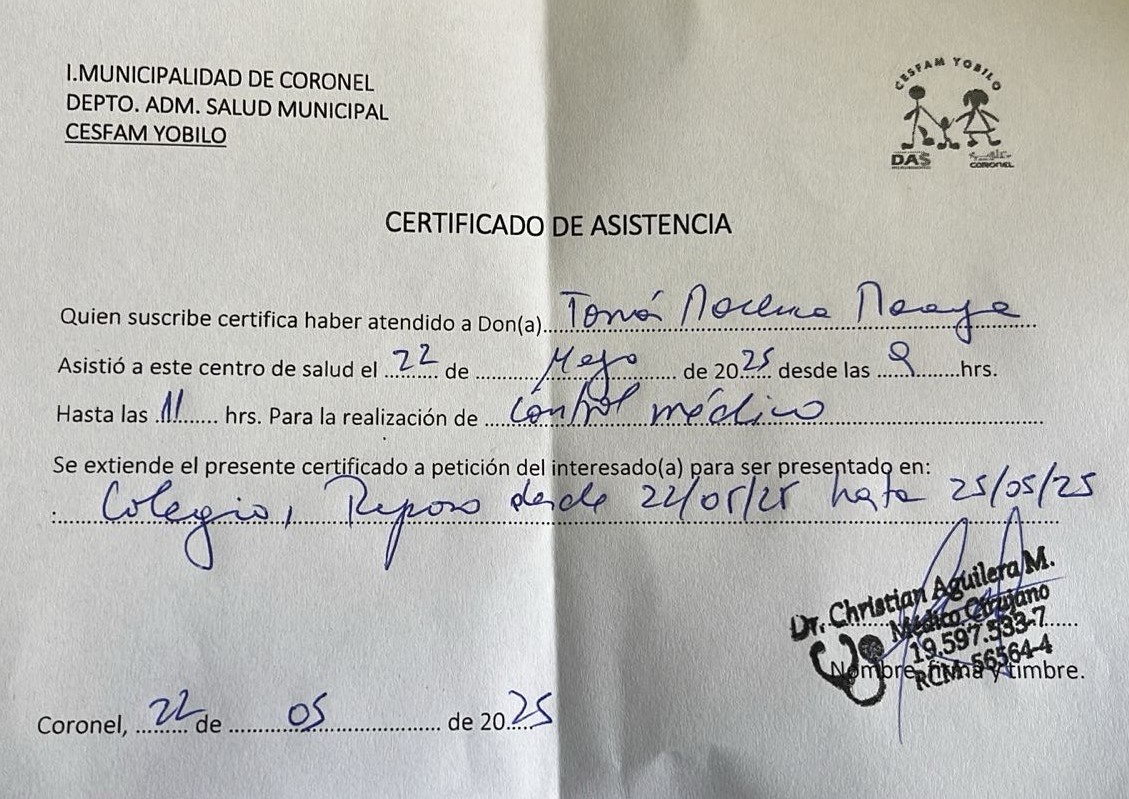 I.MUNICIPALIDAD DE CORONEL
DEPTO. ADM. SALUD MUNICIPAL
CESFAM YOBILO
CESFAM YOBILO
DAS
CORONEL
CERTIFICADO DE ASISTENCIA
Quien suscribe certifica haber atendido a Don(a) Tomás
Asistió a este centro de salud el 22 de Mayo de 2025 desde las 9 hrs.
Hasta las 11 hrs. Para la realización de Control médico
Se extiende el presente certificado a petición del interesado(a) para ser presentado en:
: Colegio, Reposo desde 22/05/25 hasta 25/05/25
Dr. Christian Aguilera M.
Médico Cirujano
19.597.533-7
RCM: 56564-4
Nombre, firma y timbre.
Coronel, 22 de 05 de 2025